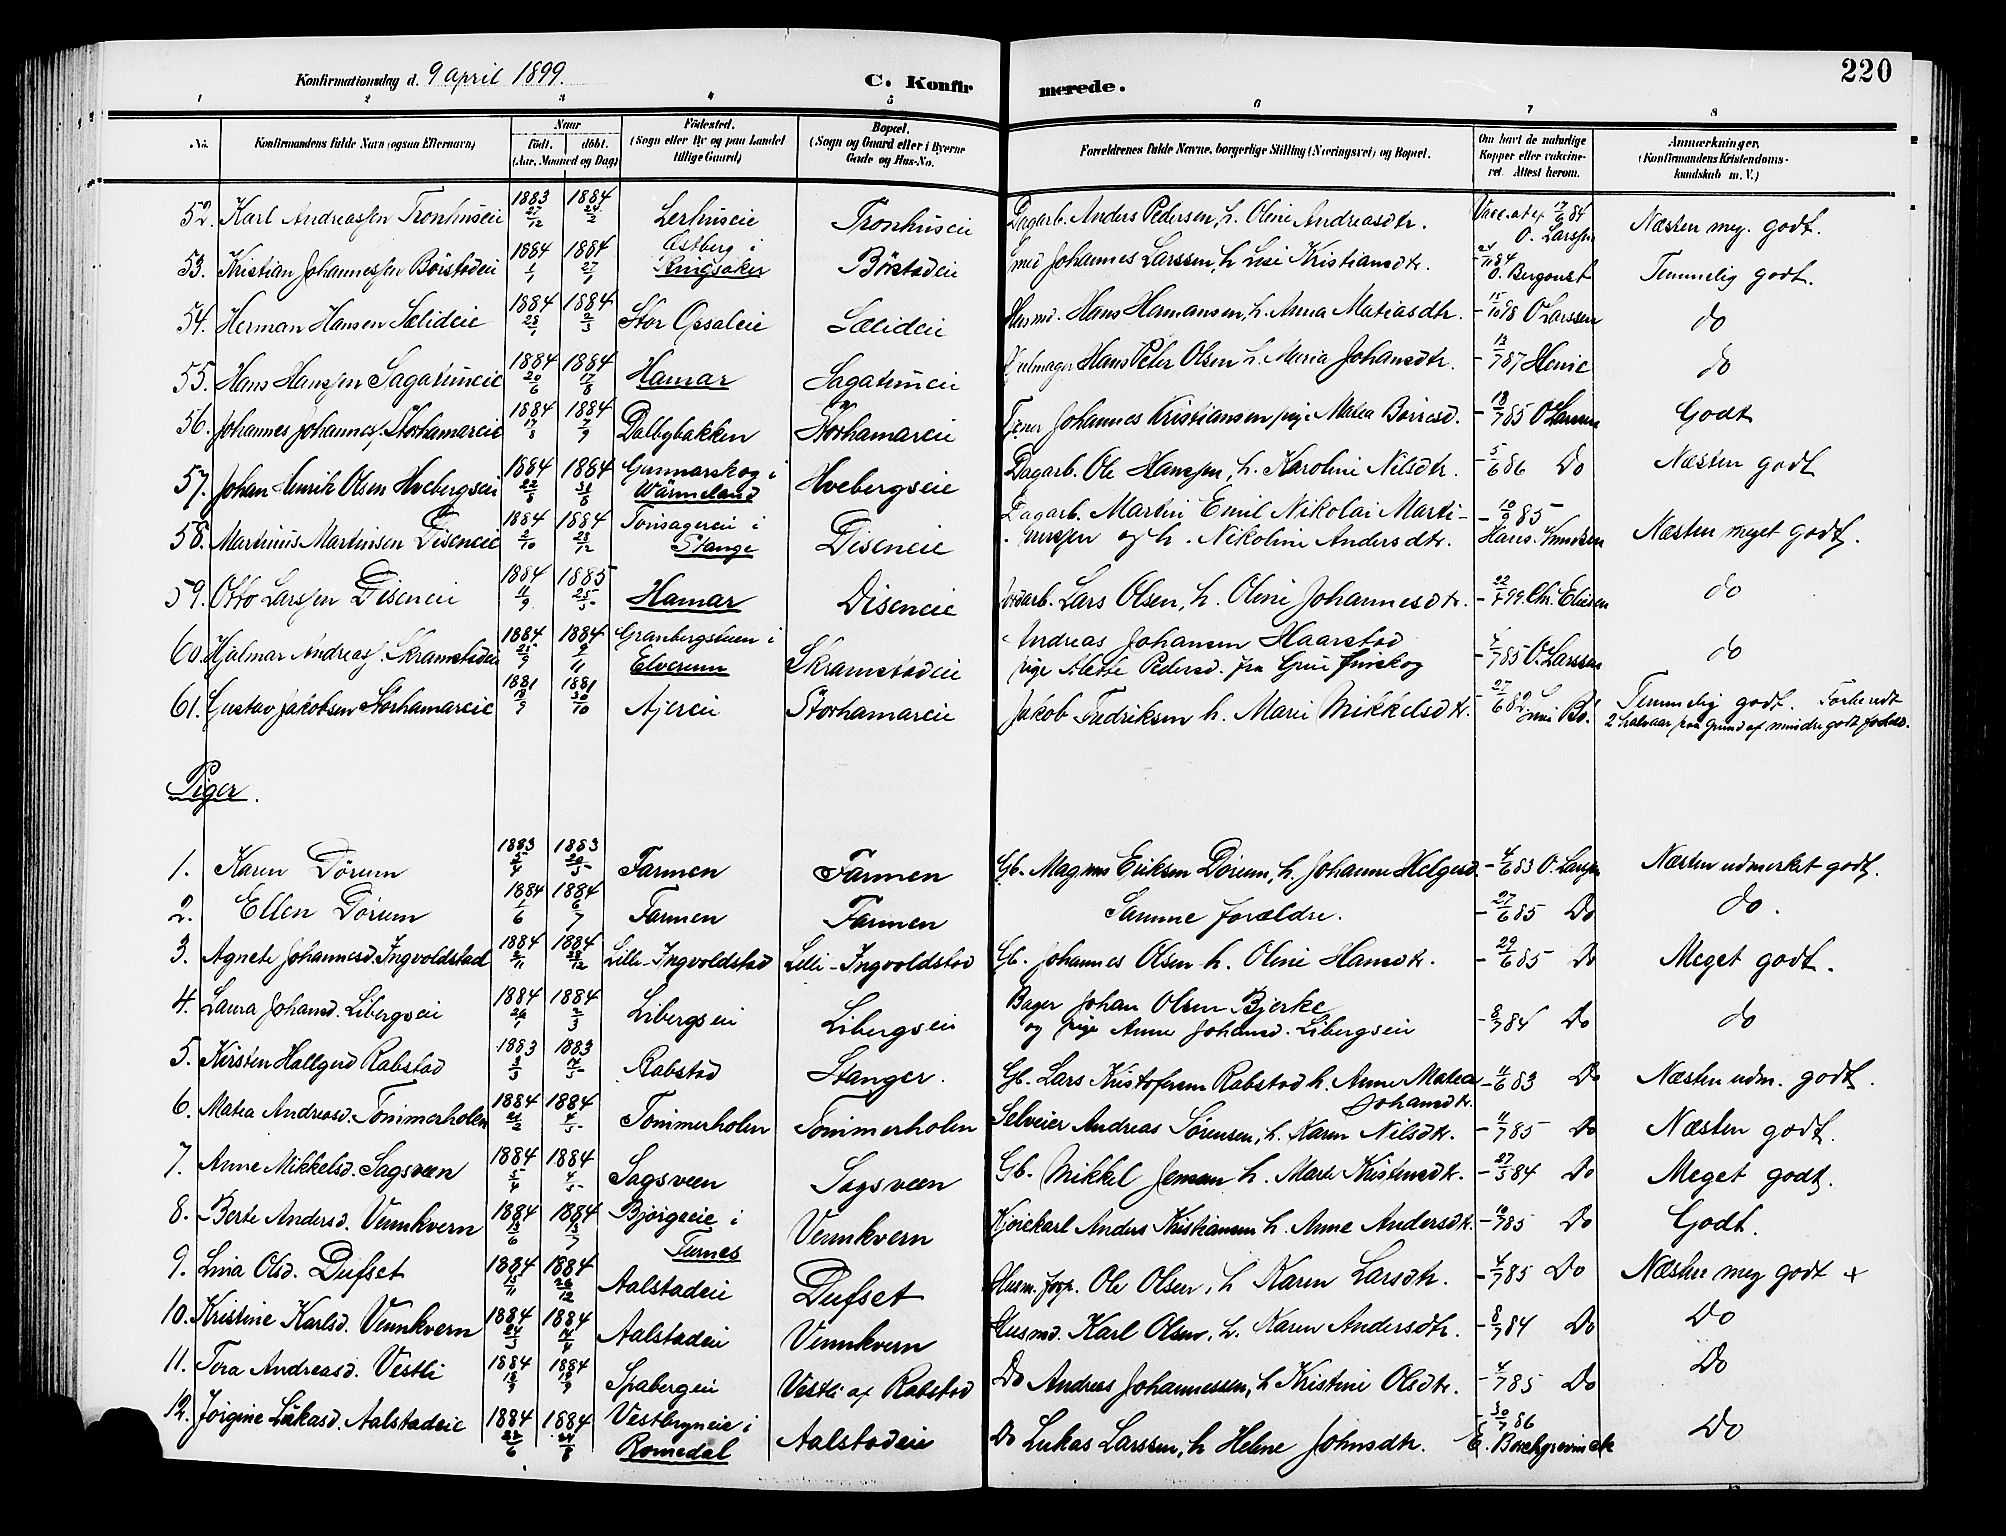 220
Konfirmationsdag d. 9 April 1899.
C. Konfirmerede.
1 2 3 4 5 6 7 8
No.
Konfirmandens fulde Navn (ogsaa Efternavn)
Naar
født. døbt.
(Aar, Maaned og Dag)
Fødested.
(Sogn eller By og paa Landet
tillige Gaard)
Bopæl.
(Sogn og Gaard eller i Byerne
Gade og Hus-No.
Forældrenes fulde Navne, borgerlige Stilling (Næringsvei) og Bopæl.
Om havt de naturlige
Kopper eller vakcine-
ret. Attest herom.
Anmærkninger.
(Konfirmandens Kristendoms-
kundskab m. V.)
52. Karl Andreassen Tronhuseie 1883 27/12 1884 24/2 Lerhuseie Tronhuseie Dagarb. Anders Pedersen, h. Oline Andreasdtr. Vacc.att. 17/6 84 O. Larssen Næsten meg. godt.
53. Kristian Johannessen Børstadeie 1884 1/1 1884 27/1 Østberg i Ringsaker Børstadeie Smed Johannes Larssen, h. Lise Kristiansdtr. - 24/11 84 O. Bergquist Temmelig godt.
54. Herman Hansen Sælideie 1884 28/1 1884 9/3 Stor Opsaleie Sælideie Husmd. Hans Hamansen, h. Anna Matiasdtr. - 15/10 98 O Larssen do
55. Hans Hanssen Sagatuneie 1884 20/6 1884 17/8 Hamar Sagatuneie Hjulmager Hans Peter Olsen h. Maria Johansdtr. - 13/7 87 Henie do
56. Johannes Johannes. Storhamareie 1884 17/8 1884 7/9 Dalbybakken Storhamareie Tjener Johannes Kristiansen, pige Matea Børresd. - 18/7 85 O Larssen Godt
57. Johan Henrik Olsen Hvebergseie 1884 22/8 1884 31/8 Gunnarskog i Wärmeland Hvebergseie Dagarb. Ole Hanssen, h. Karoline Nilsdtr. - 5/6 86 Do Næsten godt
58. Martinus Martinsen Diseneie 1884 2/10 1884 28/12 Tomsagereie i Stange Diseneie Dagarb. Martin Emil Nikolai Marti-
nussen og h. Nikoline Andersdtr. - 10/9 85 Hans Knudsen Næsten meget godt.
59. Otto Larssen Diseneie 1884 11/9 1885 25/5 Hamar Diseneie Jordarb. Lars Olsen, h. Oline Johannesdtr. - 22/ 99. Chr. Eliesen do
60. Hjalmar Andreas. Skramstadeie 1884 25/9 1884 9/11 Granbergstuen i Elverum Skramstadeie Andreas Johansen Haarstad
pige Alette Pedersd. fra Grue Finskog - /7 85 O. Larssen do
61. Gustav Jakobsen Storhamareie 1881 18/9 1881 30/10 Ajereie Storhamareie Jakob Fredriksen h. Marie Mikkelsdtr. - 27/6 82. Temmelig godt. Forberedt
2 halvaar paa Grund af mindre godt
Piger.
1. Karen Dørum 1883 5/4 1883 20/5 Farmen Farmen Gb. Magnus Eriksen Dørum, h. Johanne Helgesd. - 4/6 83 O. Larssen Næsten udmerket godt.
2. Ellen Dørum 1884 1/6 1884 6/7 Farmen Farmen Samme forældre. - 27/6 85 Do do.
3. Agnete Johannesd. Ingvoldstad 1884 2/11 1884 28/12 Lille-Ingvoldstad Lille-Ingvoldstad Gb. Johannes Olsen h. Oline Hansdtr. - 29/6 85 Do Meget godt.
4. Laura Johansd. Libergseie 1884 29/1 1884 2/3 Libergseie Libergseie Bager Johan Olsen Bjerke
og pige Anne Johansd. Libergseie - 8/7 84 Do do
5. Kirsten Hallgerd Rabstad 1883 3/3 1883 14/5 Rabstad Stanger. Gb. Lars Kristofersen Rabstad h. Anne Matea Johansdtr. - 11/6 83 Do Næsten udm. godt.
6. Matea Andreasd. Tømmerholen 1884 25/2 1884 4/5 Tømmerholen Tømmerholen Selveier Andreas Sørensen, h. Karen Nilsdtr. - 11/7 85 Do Næsten godt.
7. Anne Mikkelsd. Sagsveen 1884 5/4 1884 4/5 Sagsveen Sagsveen Gb. Mikkel Jensen h. Marte Kristensdtr. - 27/5 84 Do Meget godt.
8. Berte Andersd. Vennkvern 1884 13/6 1884 13/7 Bjørgeeie i Furnes Vennkvern Kjørekarl Anders Kristiansen h. Anne Andersdtr. - 10/7 85 Do Godt.
9. Lina Olsd. Dufset 1884 15/11 1884 26/12 Aalstadeie Dufset Husm. forp. Ole Olsen, h Karen Larsdtr. - 4/7 85 Do Næsten meg godt +
10. Kristine Karlsd. Vennkvern 1884 24/3 1884 14/4 Aalstadeie Vennkvern Husmd. Karl Olsen, h. Karen Andersdtr. - 8/7 84 Do Do
11. Tora Andreasd. Vestli 1884 18/9 1884 19/9 Spabergeie Vestli af Rabstad Do Andreas Johannessen, h Kristine Olsdtr. - 4/7 85 Do Do
12. Jørgine Lukasd. Aalstadeie 1884 22/6 1884 24/8 Vestbryneie i Romedal Aalstadeie Do Lukas Larssen, h Helene Johnsdtr. - 30/7 86 E. Borchgrevinck Do